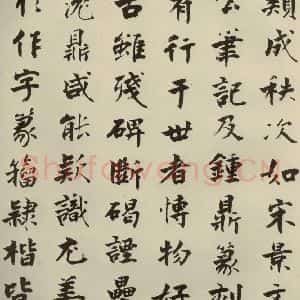 成秩次如宋景文
公筆記及鍾鼎篆刻
有行于世者博物好
古雖殘碑斷碣
鼎咸能識
作字篆籀隸楷皆
Shufawang.CN